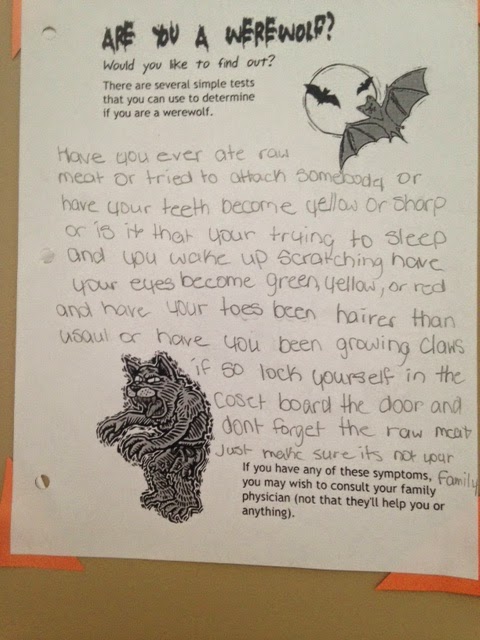 ARE YOU A WEREWOLF?
Would you like to find out?
There are several simple tests
that you can use to determine
if you are a werewolf.
Have you ever ate raw
meat or tried to attack somebody or
have your teeth become yellow or sharp
or is it that your trying to sleep
and you wake up scratching have
your eyes become green, yellow, or red
and have your toes been hairer than
usaul or have you been growing claws
if so lock yourself in the
coset board the door and
dont forget the raw meat
Just make sure its not your
family
If you have any of these symptoms,
you may wish to consult your family
physician (not that they'll help you or
anything).